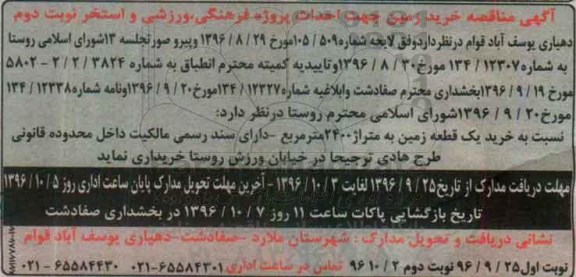 آگهی مناقصه خرید زمین جهت احداث پروژه فرهنگی،ورزشی و استخر نوبت دوم
دهیاری یوسف آباد قوام درنظرداردوفق لایحه شماره۵۰۹ /۱۰۵مورخ ۲۹ / ۸ / ۱۳۹۶ وپیرو صورتجلسه ۱۳شورای اسلامی روستا
به شماره۱۲۳۰۷ / ۱۳۴ مورخ۳۰ / ۸ / ۱۳۹۶وتاییدیه کمیته محترم انطباق به شماره ۳۸۲۴ / ۲ / ۲ - ۵۸۰۲
مورخ ۱۹ / ۹ / ۱۳۹۶بخشداری محترم صفادشت وابلاغیه شماره۱۲۳۲۷ / ۱۳۴مورخ۲۰ / ۹ / ۱۳۹۶ونامه شماره۱۲۳۳۸ / ۱۳۴
مورخ۲۰ / ۹ / ۱۳۹۶شورای اسلامی محترم روستا درنظر دارد:
نسبت به خرید یک قطعه زمین به متراژ۲۴۰۰مترمربع -دارای سند رسمی مالکیت داخل محدوده قانونی
طرح هادی ترجیحا در خیابان ورزش روستا خریداری نماید
مهلت دریافت مدارک از تاریخ۲۵ / ۹ / ۱۳۹۶ لغایت ۳ / ۱۰ / ۱۳۹۶ - آخرین مهلت تحویل مدارک پایان ساعت اداری روز ۵ / ۱۰ / ۱۳۹۶
تاریخ بازگشایی پاکات ساعت ۱۱ روز ۷ / ۱۰ / ۱۳۹۶ در بخشداری صفادشت
نشانی دریافت و تحویل مدارک : شهرستان ملارد -صفادشت-دهیاری یوسف آباد قوام
نوبت اول۲۵ / ۹ / ۹۶ نوبت دوم ۲ / ۱۰ / ۹۶ تماس در ساعت اداری ۶۵۵۸۴۳۰۱-۰۲۱ ۶۵۵۸۴۴۳۰ - ۰۲۱